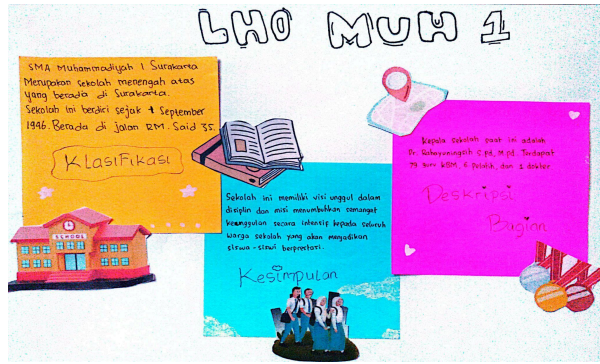 LHO MUH 1
SMA Muhammadiyah 1 Surakarta
Merupakan sekolah menengah atas
yang berada di Surakarta.
Sekolah ini berdiri sejak 1 September
1946. Berada di jalan RM. Said 35.
Klasifikasi
SCHOOL
Sekolah ini memiliki visi unggul dalam
disiplin dan misi menumbuhkan semangat
keunggulan secara intensif kepada seluruh
warga sekolah yang akan menjadikan
siswa-siswi berprestasi.
Kesimpulan
Kepala sekolah saat ini adalah
Dr. Rahayuningsih S.pd, M.pd. Terdapat
79 guru KBM, 6 Pelatih, dan 1 dokter
Deskripsi
Bagian